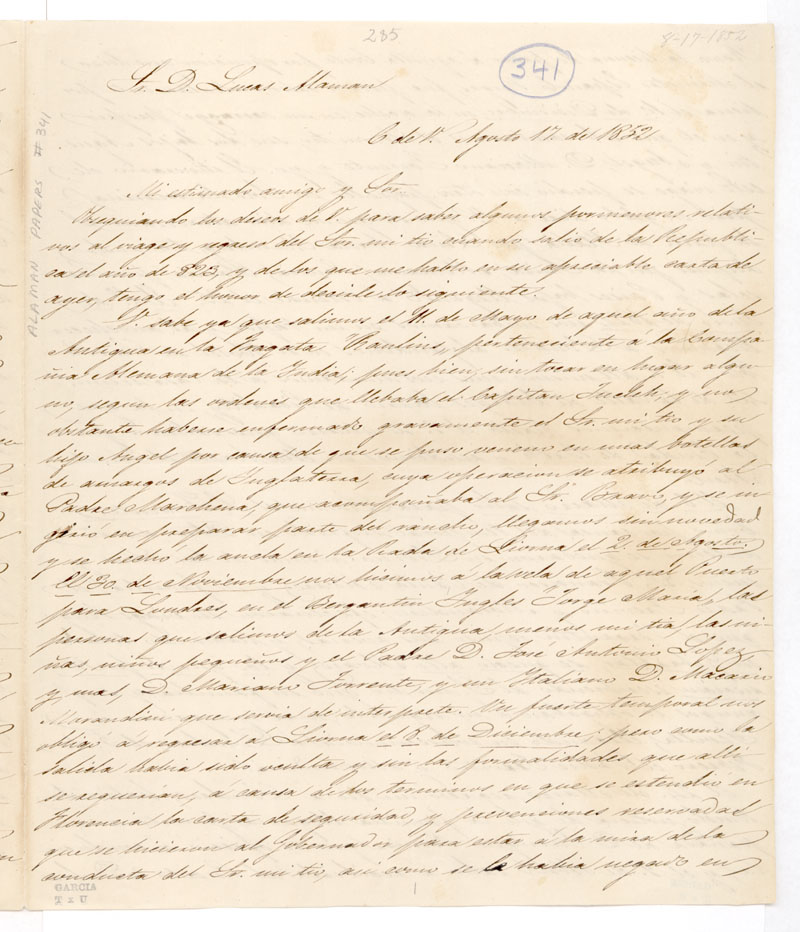 285
8-17-1852
341
ALAMAN PAPERS # 341
Sr. D. Lucas Alaman
C. de V. Agosto 17. de 1852
Mi estimado amigo y Sor.
Obsequiando los deseos de V. para saber algunos pormenores relati-
vos al viage y regreso del Sor. mi tio cuando salió de la Republi-
ca el año de 823, y de los que me habló en su apreciable carta de
ayer, tengo el honor de decirle lo siguiente.
V. sabe ya que salimos el 11. de Mayo de aquel año de la
Antigua en la Fragata Raulins, perteneciente á la Compa-
ñia Alemana de la India; pues bien, sin tocar en lugar algu-
no, segun las ordenes que llebaba el Capitan y no
obstante haberse enfermado gravamente el Sr. mi tio y su
hijo Angel por causa de que se puso veneno en unas botellas
de amargos de Inglaterra, cuya operacion se atribuyó al
Padre Marchena, que acompañaba al Sr. Bravo, y se in
girió en preparar parte del rancho, llegamos sin novedad
y se hechó la ancla en la Rada de Liorna el 2. de Agosto.
El 30. de Noviembre nos hicimos á la vela de aquel Puerto
para Londres, en el Bergantin Ingles "Jorge Maria, las
personas que salimos de la Antigua, menos mi tia las ni-
ñas, niños pequeños y el Padre D. José Antonio Lopez,
y mas, D. Mariano Torrente, y un Italiano D. Macario
Morandini que servia de interprete. Un fuerte temporal nos
obligó á regresar á Liorna el 8. de Diciembre; pero como la
salida habia sido oculta y sin las formalidades que alli
se requerian, a causa de los terminos en que se estendió en
Florencia la carta de seguridad, y prevenciones reservadas
que se hicieron al Gobernador para estar á la mira de la
conducta del Sr. mi tio, asi como se le habia negado en
GARCIA
1